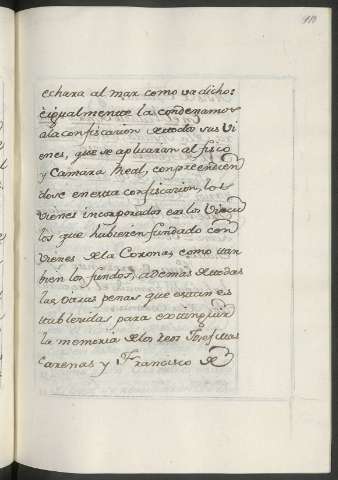 echara al mar como va dicho:
è igualmente la condenamos
a la confiscacion de todos sus vi
enes, que se aplicaran al fisco
y Camara Real, conprendien
dose en esta confiscacion, los
vienes incorporados en los vincu
los que hubieren fundado con
vienes de la Corona, como tan
bien los fundos; ademas de todas
las otras penas que estan es
tablecidas para extinguir
la memoria de los reos Josefittas
Carenas y Francisco de